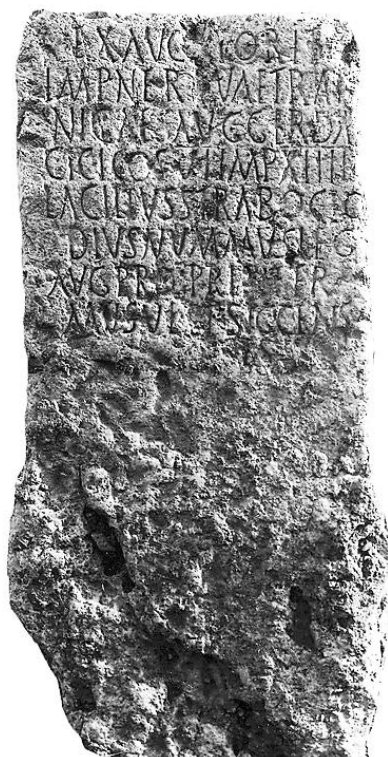 EX AVC ORIT
IMP NERVAE TRAIA
NI CAE AVG GER DA
CICI COS VI IMP XIIII
L ACILIVS STRABO CLO
DIVS NVMMVS LEG
AVG PRO PR
MVSVL